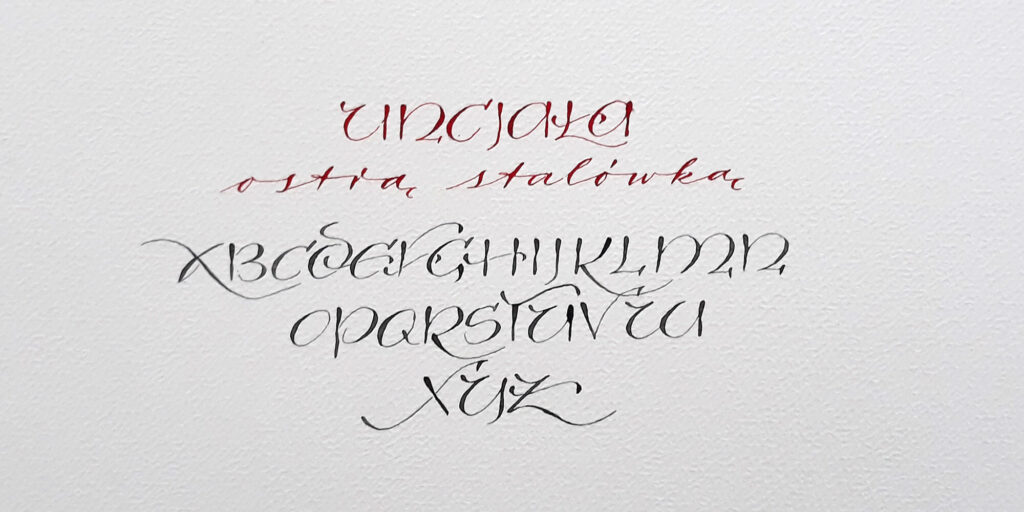 UNCJAŁA
ostrą stalówką
ABCDEFGHIJKLMN
OPQRSTUVW
XYZ